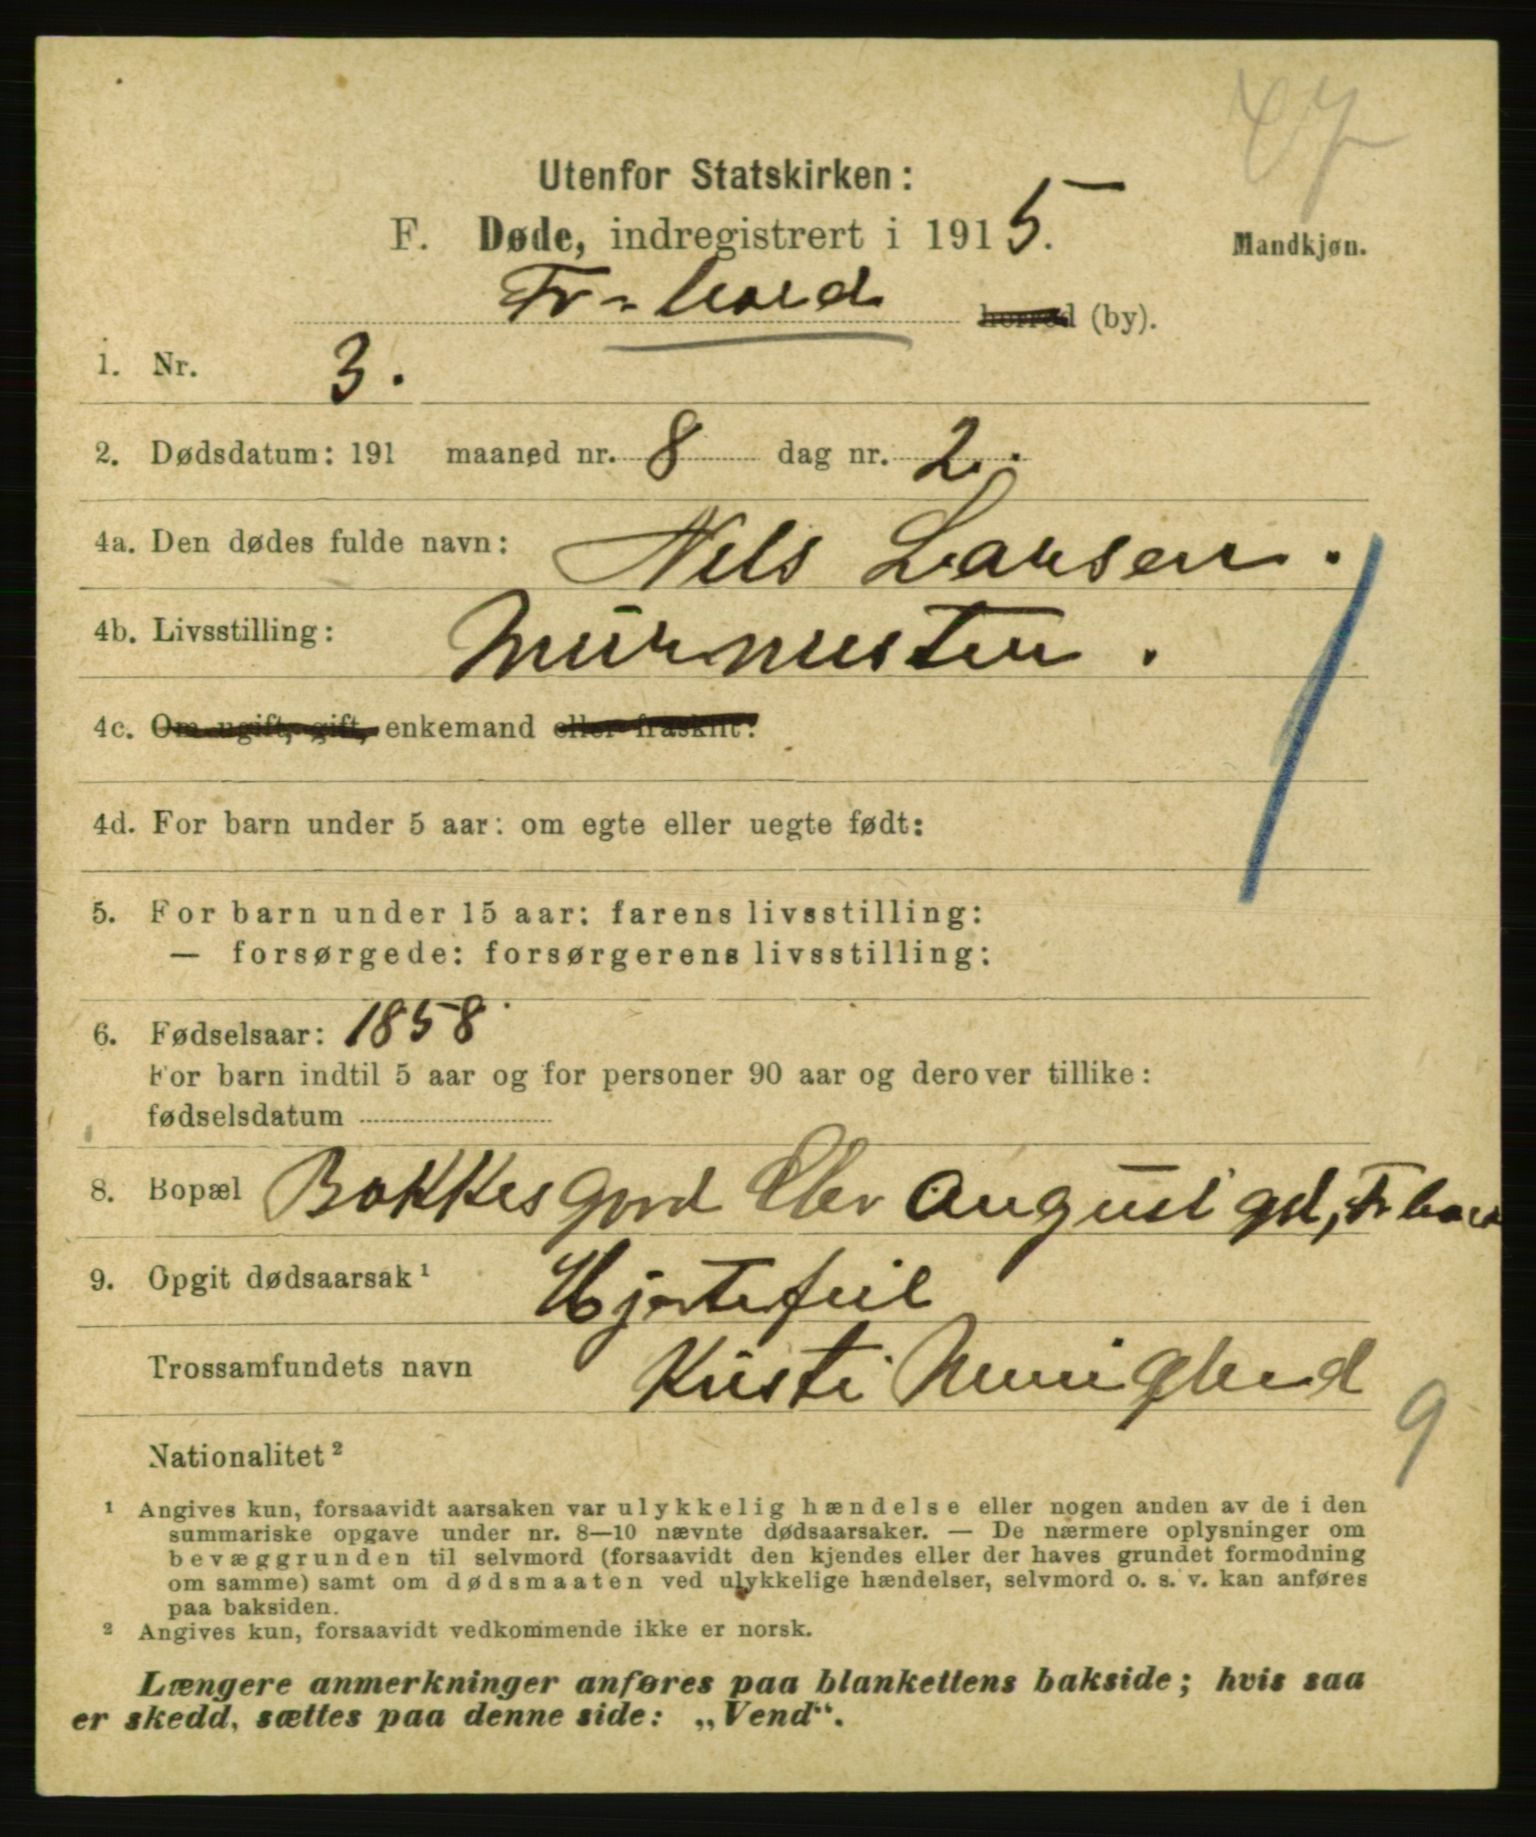 47
Utenfor Statskirken:
F. Døde, indregistrert i 1915.
Mandkjøn.
Fr-hald herred (by).
1. Nr. 3.
2. Dødsdatum: 191 maaned nr. 8 dag nr. 2.
4a. Den dødes fulde navn: Nils Larsen.
4b. Livsstilling: Murmester.
4c. Om ugift, gift, enkemand eller fraskilt:
4d. For barn under 5 aar: om egte eller uegte født:
5. For barn under 15 aar: farens livsstilling:
— forsørgede: forsørgerens livsstilling:
6. Fødselsaar: 1858
For barn indtil 5 aar og for personer 90 aar og derover tillike:
fødselsdatum
8. Bopæl August gd, Fr hald
9. Opgit dødsaarsak¹ Hjertefeil
Trossamfundets navn Kristi Menighed
9
Nationalitet²
¹ Angives kun, forsaavidt aarsaken var ulykkelig hændelse eller nogen anden av de i den
summariske opgave under nr. 8—10 nævnte dødsaarsaker. — De nærmere oplysninger om
bevæggrunden til selvmord (forsaavidt den kjendes eller der haves grundet formodning
om samme) samt om dødsmaaten ved ulykkelige hændelser, selvmord o. s. v. kan anføres
paa baksiden.
² Angives kun, forsaavidt vedkommende ikke er norsk.
Længere anmerkninger anføres paa blankettens bakside; hvis saa
er skedd, sættes paa denne side: „Vend“.